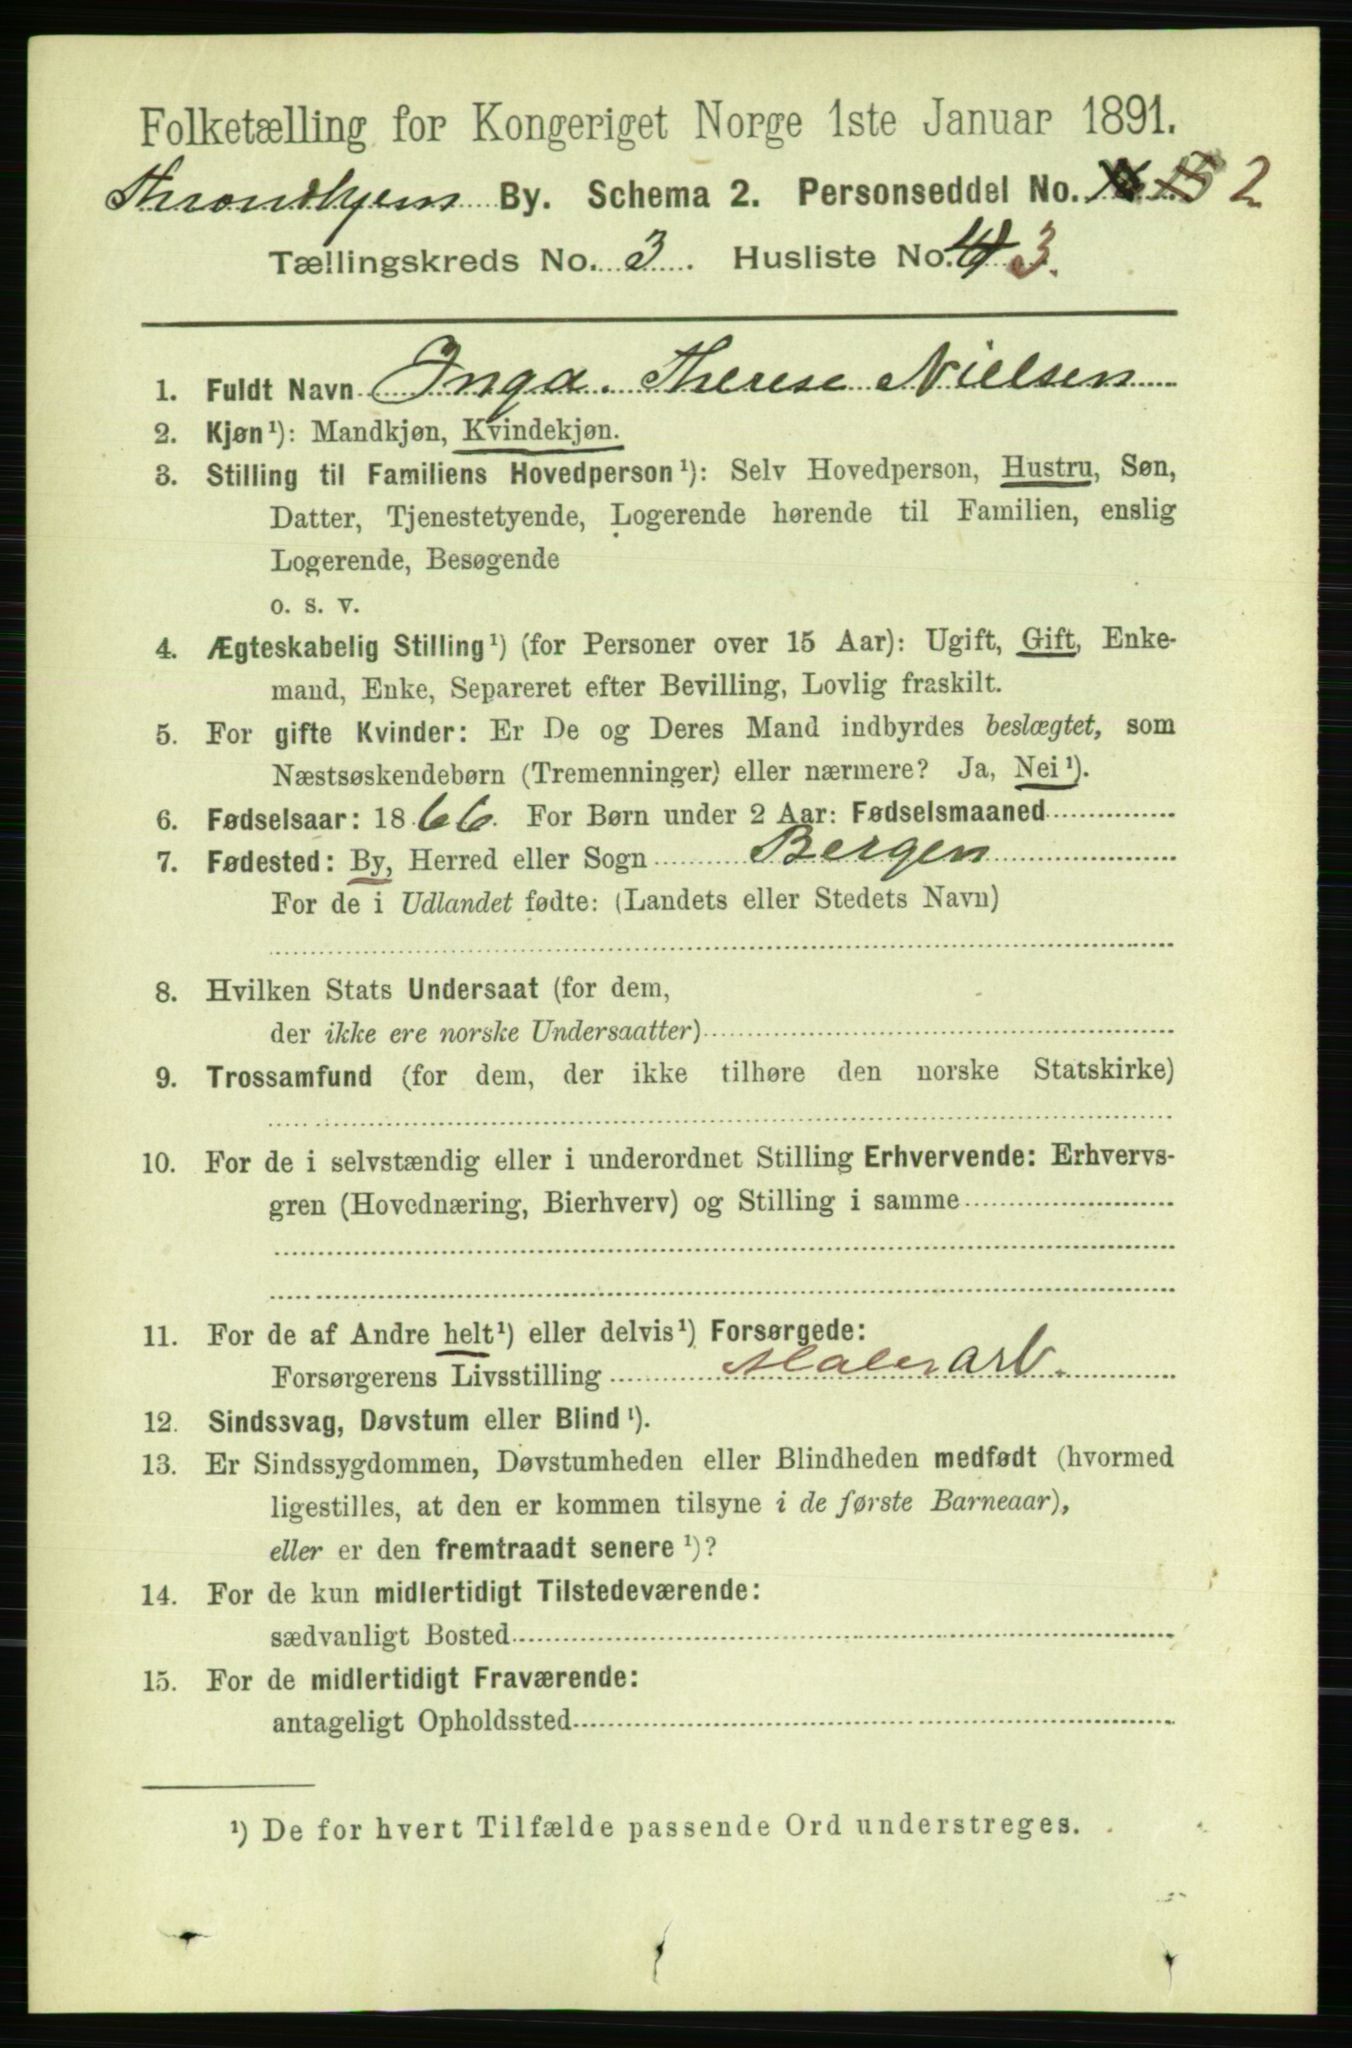 Folketælling for Kongeriget Norge 1ste Januar 1891.
Throndhjems By. Schema 2. Personseddel No. 2
Tællingskreds No. 3. Husliste No. 3.
1. Fuldt Navn Inga. Therese Nielsen
2. Kjøn¹): Mandkjøn, Kvindekjøn.
3. Stilling til Familiens Hovedperson¹): Selv Hovedperson, Hustru, Søn,
Datter, Tjenestetyende, Logerende hørende til Familien, enslig
Logerende, Besøgende
o. s. v.
4. Ægteskabelig Stilling¹) (for Personer over 15 Aar): Ugift, Gift, Enke-
mand, Enke, Separeret efter Bevilling, Lovlig fraskilt.
5. For gifte Kvinder: Er De og Deres Mand indbyrdes beslægtet, som
Næstsøskendebørn (Tremenninger) eller nærmere? Ja, Nei¹).
6. Fødselsaar: 1866. For Børn under 2 Aar: Fødselsmaaned
7. Fødested: By, Herred eller Sogn Bergen
For de i Udlandet fødte: (Landets eller Stedets Navn)
8. Hvilken Stats Undersaat (for dem,
der ikke ere norske Undersaatter)
9. Trossamfund (for dem, der ikke tilhøre den norske Statskirke)
10. For de i selvstændig eller i underordnet Stilling Erhvervende: Erhvervs-
gren (Hovednæring, Bierhverv) og Stilling i samme
11. For de af Andre helt¹) eller delvis¹) Forsørgede:
Forsørgerens Livsstilling Malerarb.
12. Sindssvag, Døvstum eller Blind¹).
13. Er Sindssygdommen, Døvstumheden eller Blindheden medfødt (hvormed
ligestilles, at den er kommen tilsyne i de første Barneaar),
eller er den fremtraadt senere¹)?
14. For de kun midlertidigt Tilstedeværende:
sædvanligt Bosted
15. For de midlertidigt Fraværende:
antageligt Opholdssted
¹) De for hvert Tilfælde passende Ord understreges.